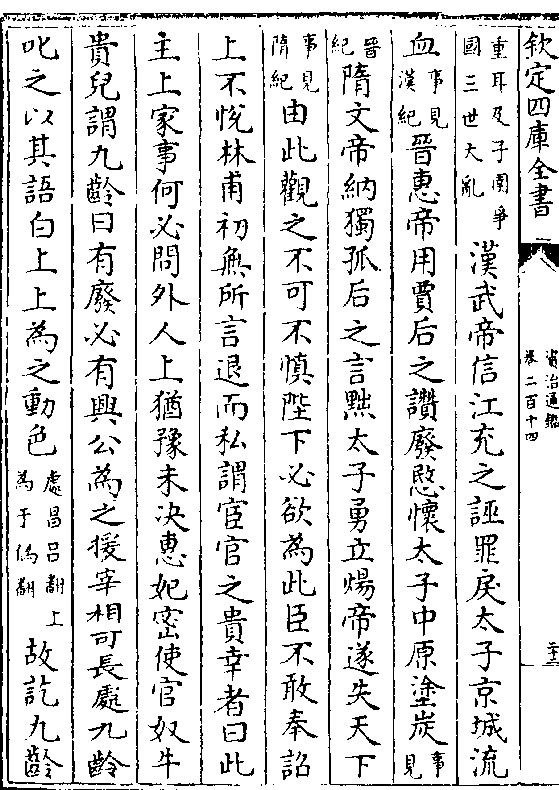 欽定四庫全書
資治通鑑
卷二百十四
重耳及子圉爭
國三世大亂
漢武帝信江充之誣罪戾太子京城流
血
事見
漢紀
晉惠帝用賈后之讚廢愍懷太子中原塗炭
事見
晉紀
隋文帝納獨孤后之言黜太子勇立煬帝遂失天下
事見
隋紀
由此觀之不可不慎陛下必欲為此臣不敢奉詔
上不悅林甫初無所言退而私謂宦官之貴幸者曰此
主上家事何必問外人上猶豫未決惠妃密使官奴牛
貴兒謂九齡曰有廢必有興公為之援宰相可長處九齡
叱之以其語白上上為之動色
處昌呂翻上
為于偽翻
故訖九齡